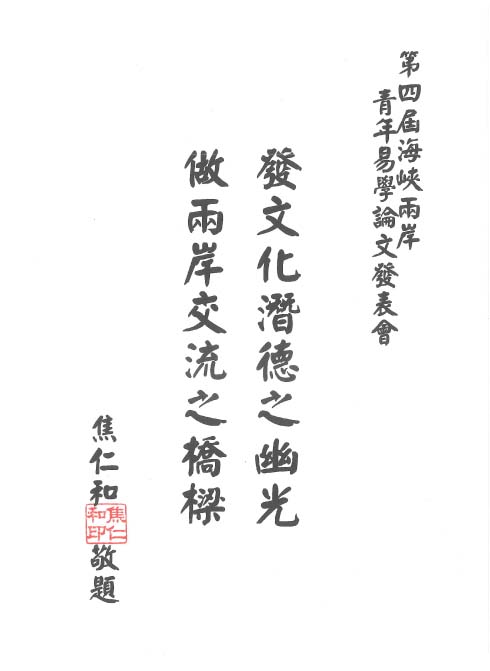 第四屆海峽兩岸
青年易學論文發表會
發文化潛德之幽光
做兩岸交流之橋樑
焦仁和敬題
焦仁
和印